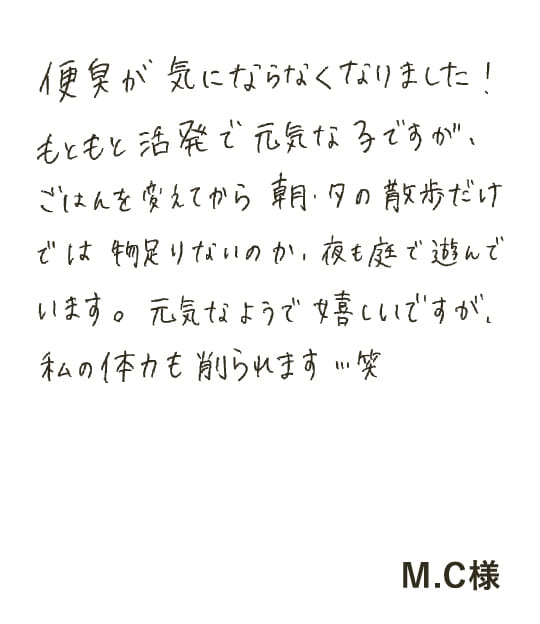 便臭が 気にならなくなりました！
もともと活発で元気な子ですが、
ごはんを変えてから 朝・夕の散歩だけ
では 物足りないのか、夜も庭で遊んで
います。元気なようで嬉しいですが、
私の体力も削られます…笑
M.C様